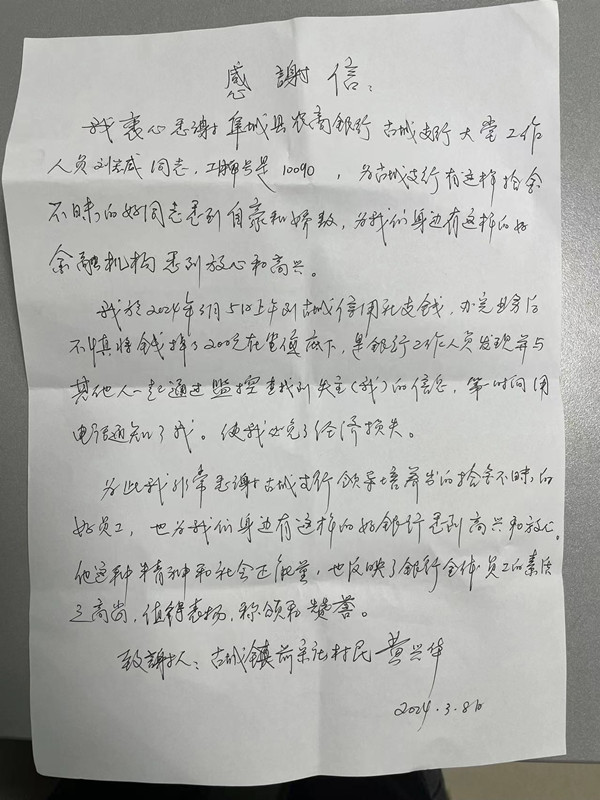 感謝信:
我衷心感谢阜城县农商银行古城支行大堂工作
人员刘志威同志,工牌号是10090,为古城支行有这样拾金
不昧的好同志感到自豪和骄傲,为我们身边有这样的好
金融机构感到放心和高兴。
我于2024年3月5日上午到古城信用社支钱,办完业务后
不慎将钱掉了200元在柜檯底下,是银行工作人员发现并与
其他人一起通过监控查找到失主(我)的信息,第一时间用
电话通知了我。使我避免了经济损失。
为此我非常感谢古城支行领导培养出的拾金不昧的
好员工,也为我们身边有这样的好银行感到高兴和放心。
他这种精神和社会正能量,也反映了银行全体员工的素质
之高尚,值得表扬,称颂和赞誉。
致謝人:古城鎮前宋社村民 黄兴华
2024.3.8日